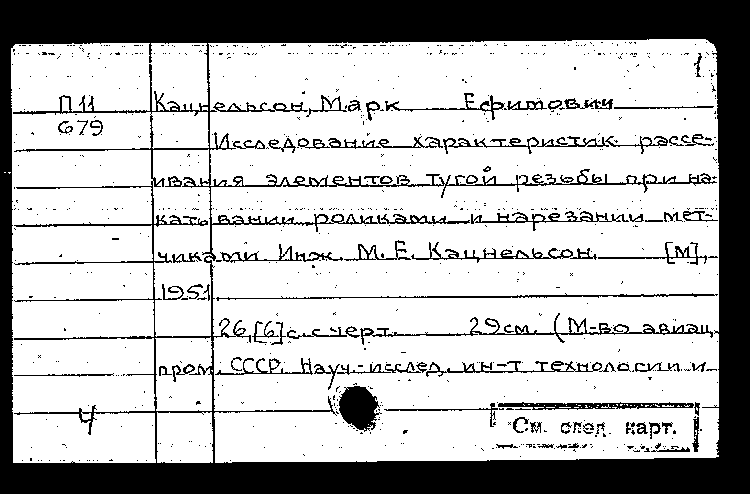 1
П 11 Кацнельсон, Марк Ефимович
679
Исследование характеристик рассе-
ивания элементов тугой резьбы при на-
катывании роликами и нарезании мет-
чиками Инж. М. Е. Кацнельсон. [М],
1951.
26,[6]с. с черт. 29см. (М-во авиац.
пром. СССР. Науч.-исслед. ин-т технологии и
4
См. след. карт.